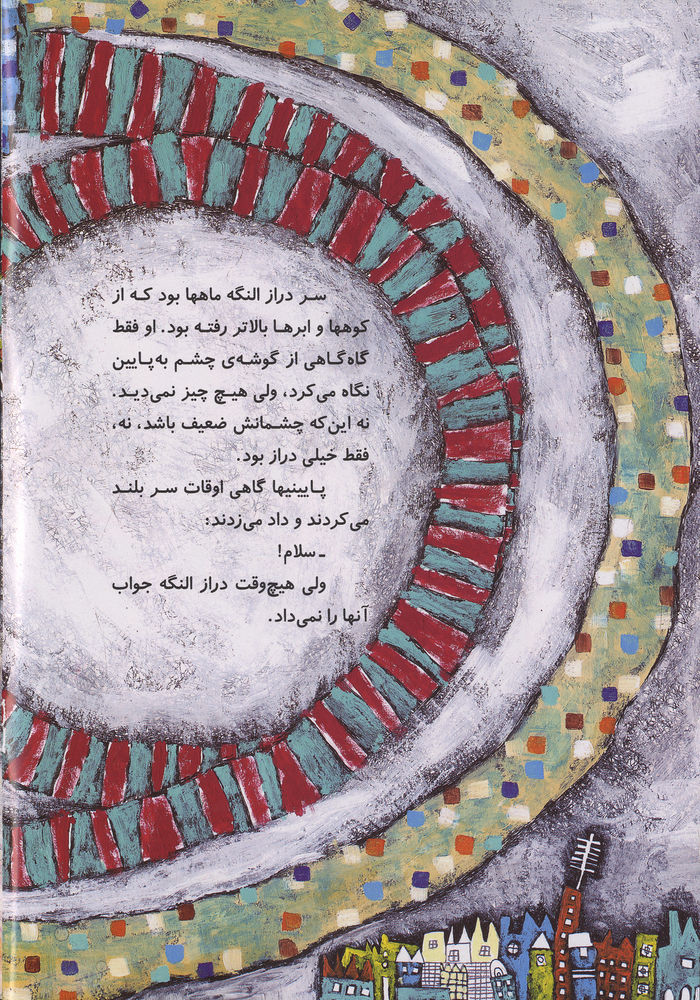 سر دراز النگه ماهها بود که از
کوهها و ابرها بالاتر رفته بود. او فقط
گاه‌گاهی از گوشه‌ی چشم به‌پایین
نگاه می‌کرد، ولی هیچ چیز نمی‌دید.
نه این‌که چشمانش ضعیف باشد، نه،
فقط خیلی دراز بود.
پایینیها گاهی اوقات سر بلند
می‌کردند و داد می‌زدند:
ـ سلام!
ولی هیچ‌وقت دراز النگه جواب
آنها را نمی‌داد.